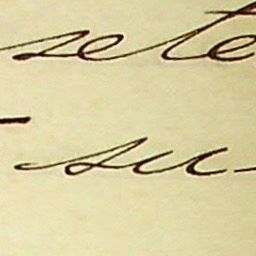 sete
- su-